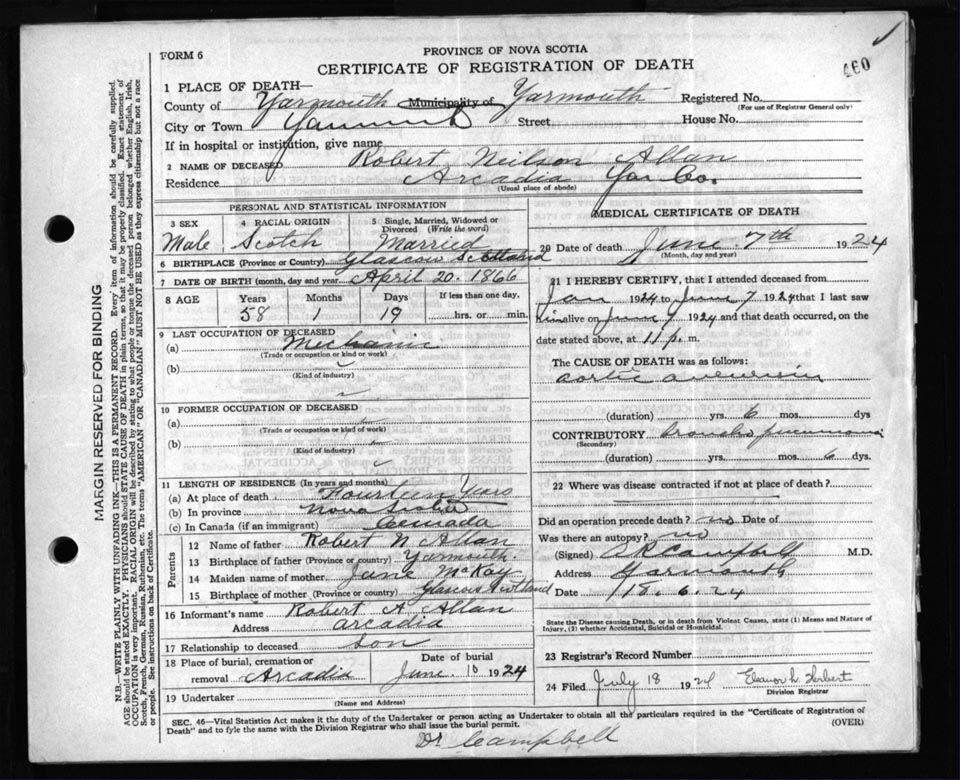 FORM 6
PROVINCE OF NOVA SCOTIA
CERTIFICATE OF REGISTRATION OF DEATH
460
1 PLACE OF DEATH—
County of Yarmouth Municipality of Yarmouth Registered No.
(For use of Registrar General only)
City or Town Yarmouth Street House No.
If in hospital or institution, give name
2 NAME OF DECEASED Robert Neilson Allan
Residence Arcadia Yar Co.
(Usual place of abode)
PERSONAL AND STATISTICAL INFORMATION
3 SEX 4 RACIAL ORIGIN 5 Single, Married, Widowed or Divorced (Write the word)
Male Scotch Married
6 BIRTHPLACE (Province or Country) Glascow Scotland
7 DATE OF BIRTH (month, day and year) April 20. 1866
8 AGE Years Months Days If less than one day,
58 1 19 hrs. or min.
9 LAST OCCUPATION OF DECEASED
(a) Mechanic
(Trade or occupation or kind or work)
(b)
(Kind of industry)
10 FORMER OCCUPATION OF DECEASED
(a)
(Trade or occupation or kind of work)
(b)
(Kind of industry)
11 LENGTH OF RESIDENCE (In years and months)
(a) At place of death Fourteen Years
(b) In province Nova Scotia
(c) In Canada (if an immigrant) Canada
Parents
12 Name of father Robert N Allan
13 Birthplace of father (Province or country) Yarmouth.
14 Maiden name of mother Jane McKay
15 Birthplace of mother (Province or country) Glascus Scotland
16 Informant's name Robert A Allan
Address arcadia
17 Relationship to deceased Son
18 Place of burial, cremation or removal Arcadia
Date of burial
June. 10 1924
19 Undertaker
(Name and Address)
MEDICAL CERTIFICATE OF DEATH
20 Date of death June 7th 1924
(Month, day and year)
21 I HEREBY CERTIFY, that I attended deceased from
Jan 1924 to June 7 1924 that I last saw
him alive on June 7 1924 and that death occurred, on
date stated above, at 11 p. m.
The CAUSE OF DEATH was as follows:
aortic aneurism
(duration) yrs. 6 mos. dys
CONTRIBUTORY broncho pneumonia
(Secondary)
(duration) yrs. mos. 6 dys.
22 Where was disease contracted if not at place of death?
Did an operation precede death? no Date of
Was there an autopsy? no
(Signed) A R Campbell M.D.
Address Yarmouth
Date 18. 6. 24
State the Disease causing Death, or in death from Violent Causes, state (1) Means and Nature of
Injury, (2) whether Accidental, Suicidal or Homicidal.
23 Registrar's Record Number
24 Filed July 18 1924 Eleanor L. Herbert
Division Registrar
SEC. 46—Vital Statistics Act makes it the duty of the Undertaker or person acting as Undertaker to obtain all the particulars required in the "Certificate of Registration of
Death" and to fyle the same with the Division Registrar who shall issue the burial permit. (OVER)
Dr Campbell
MARGIN RESERVED FOR BINDING
N.B.—WRITE PLAINLY WITH UNFADING INK—THIS IS A PERMANENT RECORD. Every item of information should be carefully supplied.
AGE should be stated EXACTLY. PHYSICIANS should STATE CAUSE OF DEATH in plain terms, so that it may be properly classified. Exact statement of
OCCUPATION is very important. RACIAL ORIGIN will be described by stating to what people or tongue the deceased person belonged whether English, Irish,
Scotch, French, German, Russian, Ruthenian, etc. The terms "AMERICAN" or "CANADIAN" MUST NOT BE USED as they express citizenship but not a race
or people. See instructions on back of Certificate.